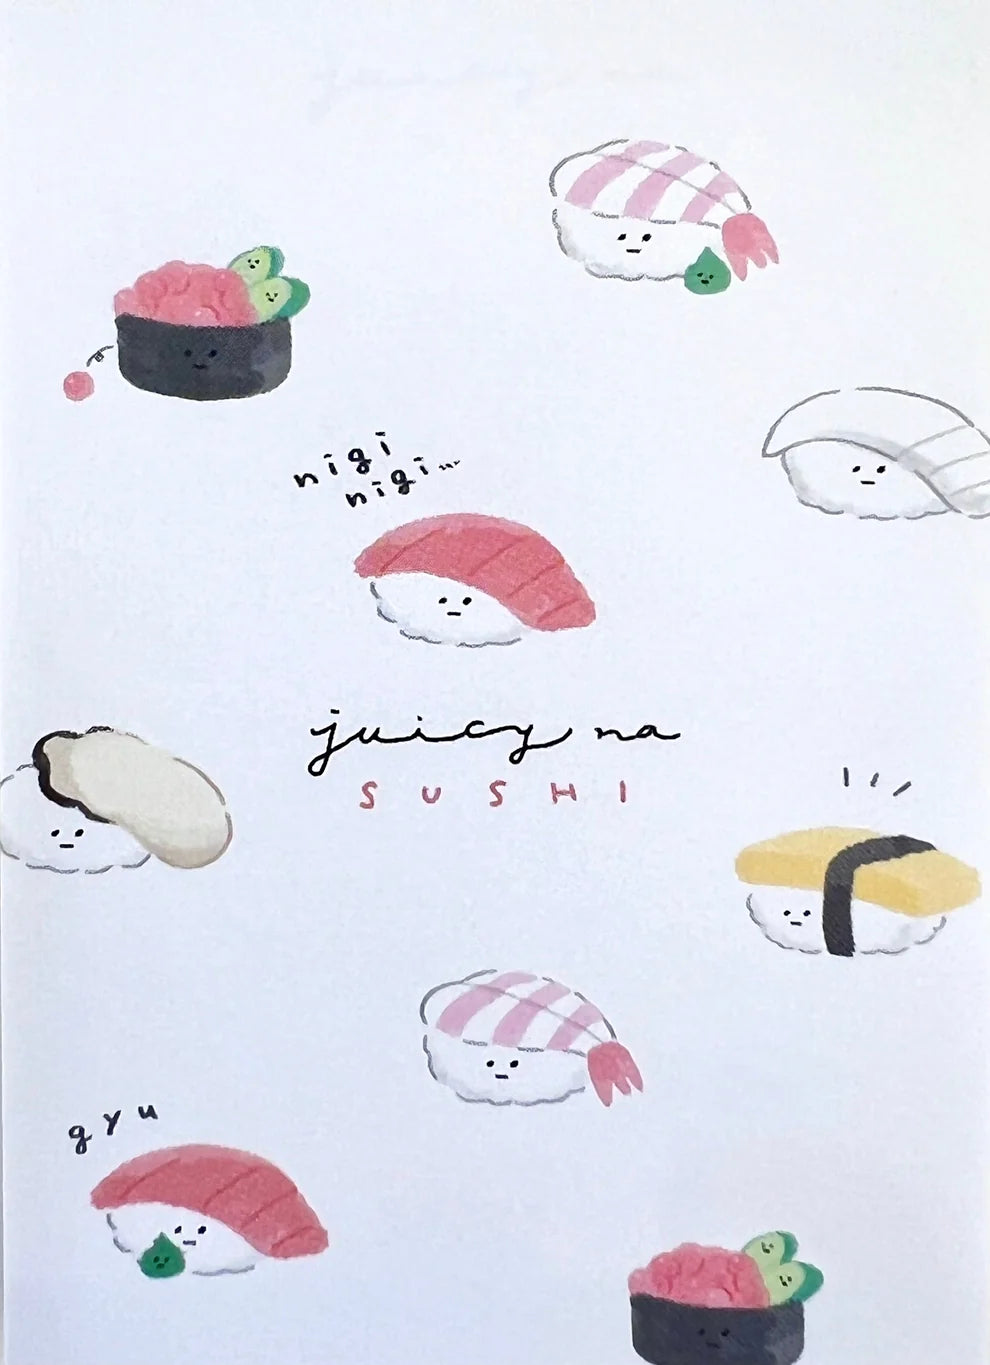 nigi
nigi...
juicy na
SUSHI
gyu